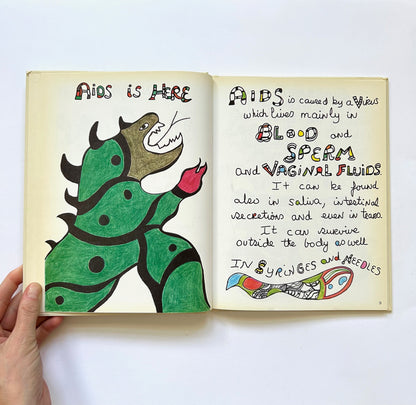 AIDS is HERE
AIDS is caused by a Virus
which lives mainly in
BLOOD and
SPERM
and VAGINAL FLUIDS.
It can be found
also in saliva, intestinal
secretions and even in tears.
It can survive
outside the body as well
IN SYRINGES and NEEDLES
9